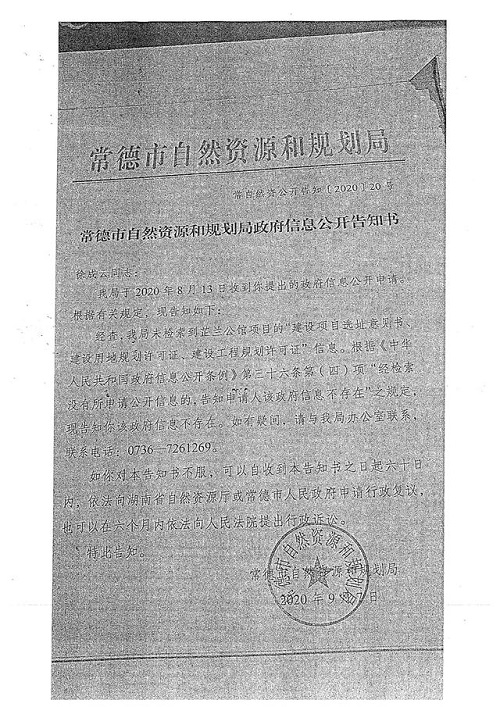 常德市自然资源和规划局
常自然资公开告知〔2020〕20号
常德市自然资源和规划局政府信息公开告知书
徐成云同志：
我局于2020年8月13日收到你提出的政府信息公开申请。
根据有关规定，现告知如下：
经查，我局未检索到芷兰公馆项目的“建设项目选址意见书、
建设用地规划许可证、建设工程规划许可证”信息。根据《中华
人民共和国政府信息公开条例》第三十六条第（四）项“经检索
没有所申请公开信息的，告知申请人该政府信息不存在”之规定，
现告知你该政府信息不存在。如有疑问，请与我局办公室联系，
联系电话：0736—7261269。
如你对本告知书不服，可以自收到本告知书之日起六十日
内，依法向湖南省自然资源厅或常德市人民政府申请行政复议，
也可以在六个月内依法向人民法院提出行政诉讼。
特此告知。
常德市自然资源和规划局
常德市自然资源和规划局
2020年9月 日